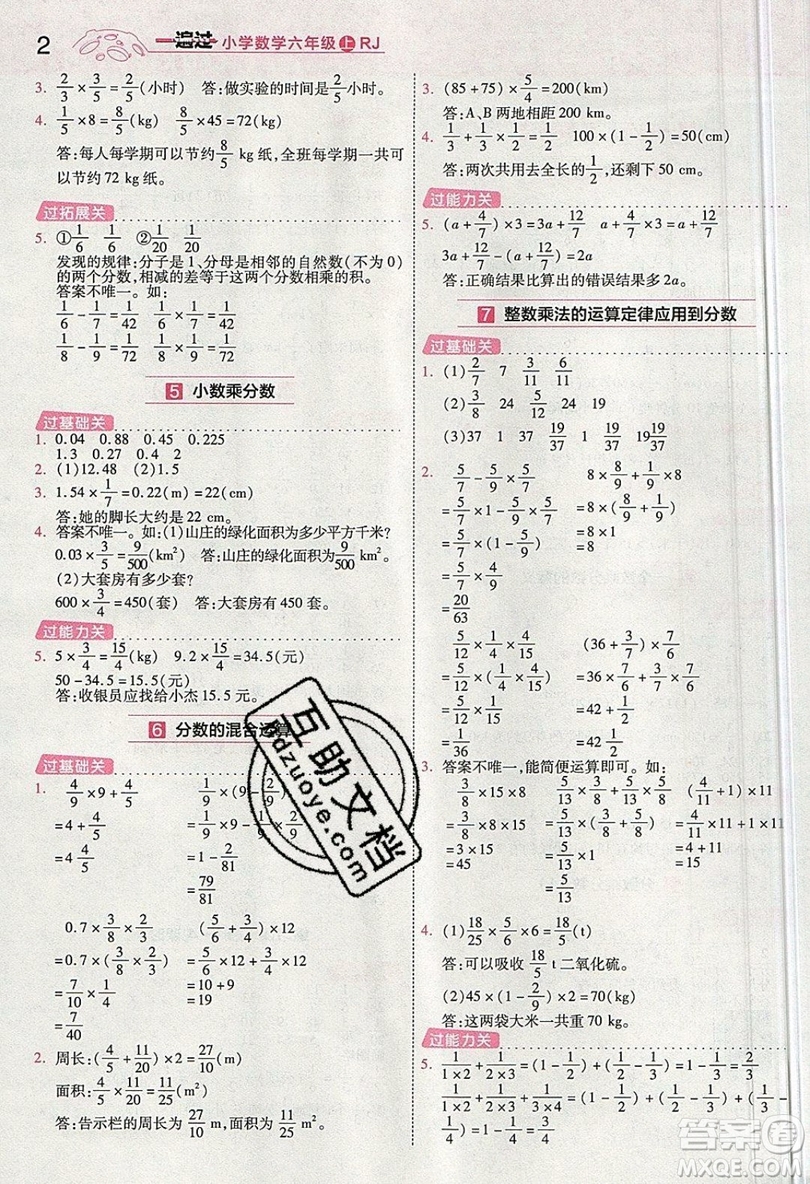 2 一遍过 小学数学六年级 上 RJ
3. 2/3 × 3/5 = 2/5(小时) 答:做实验的时间是2/5小时。
4. 1/5 × 8 = 8/5(kg) 8/5 × 45 = 72(kg)
答:每人每学期可以节约8/5 kg纸,全班每学期可以
节约72 kg纸。
过拓展关
5. ①1/6 1/6 ②1/20 1/20
发现的规律:分子是1、分母是相邻的自然数(不为0)
的两个分数,相减的差等于这两个分数相乘的积。
答案不唯一。如:
1/6 - 1/7 = 1/42 1/6 × 1/7 = 1/42
1/8 - 1/9 = 1/72 1/8 × 1/9 = 1/72
5 小数乘分数
过基础关
1. 0.04 0.88 0.45 0.225
1.3 0.27 2.4 0.72
2. (1)12.48 (2)1.5
3. 1.54 × 1/7 = 0.22(m) = 22(cm)
答:她的脚长大约是22 cm。
4. 答案不唯一。如:(1)山庄的绿化面积为多少平方千米?
0.03 × 3/5 = 9/500(km²) 答:山庄的绿化面积为9/500 km²。
(2)大套房有多少套?
600 × 3/4 = 450(套) 答:大套房有450套。
过能力关
5. 5 × 3/4 = 15/4(kg) 9.2 × 15/4 = 34.5(元)
50 - 34.5 = 15.5(元)
答:收银员应找给小杰15.5元。
6 分数的混合运算
过基础关
1. 4/9 × 9 + 4/5 1/9 × (9 - 2/9)
= 4 + 4/5 = 1/9 × 9 - 1/9 × 2/9
= 4 4/5 = 1 - 2/81
= 79/81
0.7 × 3/8 × 2/3 (5/6 + 3/4) × 12
= 0.7 × (3/8 × 2/3) = 5/6 × 12 + 3/4 × 12
= 7/10 × 1/4 = 10 + 9
= 7/40 = 19
2. 周长:(4/5 + 11/20) × 2 = 27/10(m)
面积:4/5 × 11/20 = 11/25(m²)
答:告示栏的周长为27/10 m,面积为11/25 m²。
3. (85 + 75) × 5/4 = 200(km)
答:A、B两地相距200 km。
4. 1/3 + 1/3 × 1/2 = 1/2 100 × (1 - 1/2) = 50(cm)
答:两次共用去全长的1/2,还剩下50 cm。
过能力关
5. (a + 4/7) × 3 = 3a + 12/7 a + 4/7 × 3 = a + 12/7
3a + 12/7 - (a + 12/7) = 2a
答:正确结果比算出的错误结果多2a。
7 整数乘法的运算定律应用到分数
过基础关
1. (1)2/7 7 3/11 6/11
(2)3/8 24 5/12 24 19 19
(3)37 1 37 19/37 1 19/37
2. 5/7 - 5/9 × 5/7 8 × 8/9 + 1/9 × 8
= 5/7 × 1 - 5/9 × 5/7 = 8 × (8/9 + 1/9)
= 5/7 × (1 - 5/9) = 8 × 1
= 5/7 × 4/9 = 8
= 20/63
5/12 × 1/7 × 4/15 (36 + 3/7) × 7/6
= 5/12 × 4/15 × 1/7 = 36 × 7/6 + 3/7 × 7/6
= 1/9 × 1/7 = 42 + 1/2
= 1/36 = 42 1/2
3. 答案不唯一,能简便运算即可。如:
3/8 × 15 × 8 5/13 × 3/8 + 5/13 × 5/8 (4/11 + 1) × 11
= 3/8 × 8 × 15 = 5/13 × (3/8 + 5/8) = 4/11 × 11 + 1 × 11
= 3 × 15 = 5/13 × 1 = 4 + 11
= 45 = 5/13 = 15
4. (1)18/25 × 5/6 × 6 = 18/5(t)
答:可以吸收18/5 t二氧化硫。
(2)45 × (1 - 2/9) × 2 = 70(kg)
答:这两袋大米一共重70 kg。
过能力关
5. 1/(1×2) + 1/(2×3) = (1 - 1/2) + (1/2 - 1/3) = 1 - 1/3 = 2/3
1/(1×2) + 1/(2×3) + 1/(3×4) = (1 - 1/2) + (1/2 - 1/3) + (1/3 -
1/4) = 1 - 1/4 = 3/4
互助文档
bdzuoye.com
答案圈
MXQE.COM